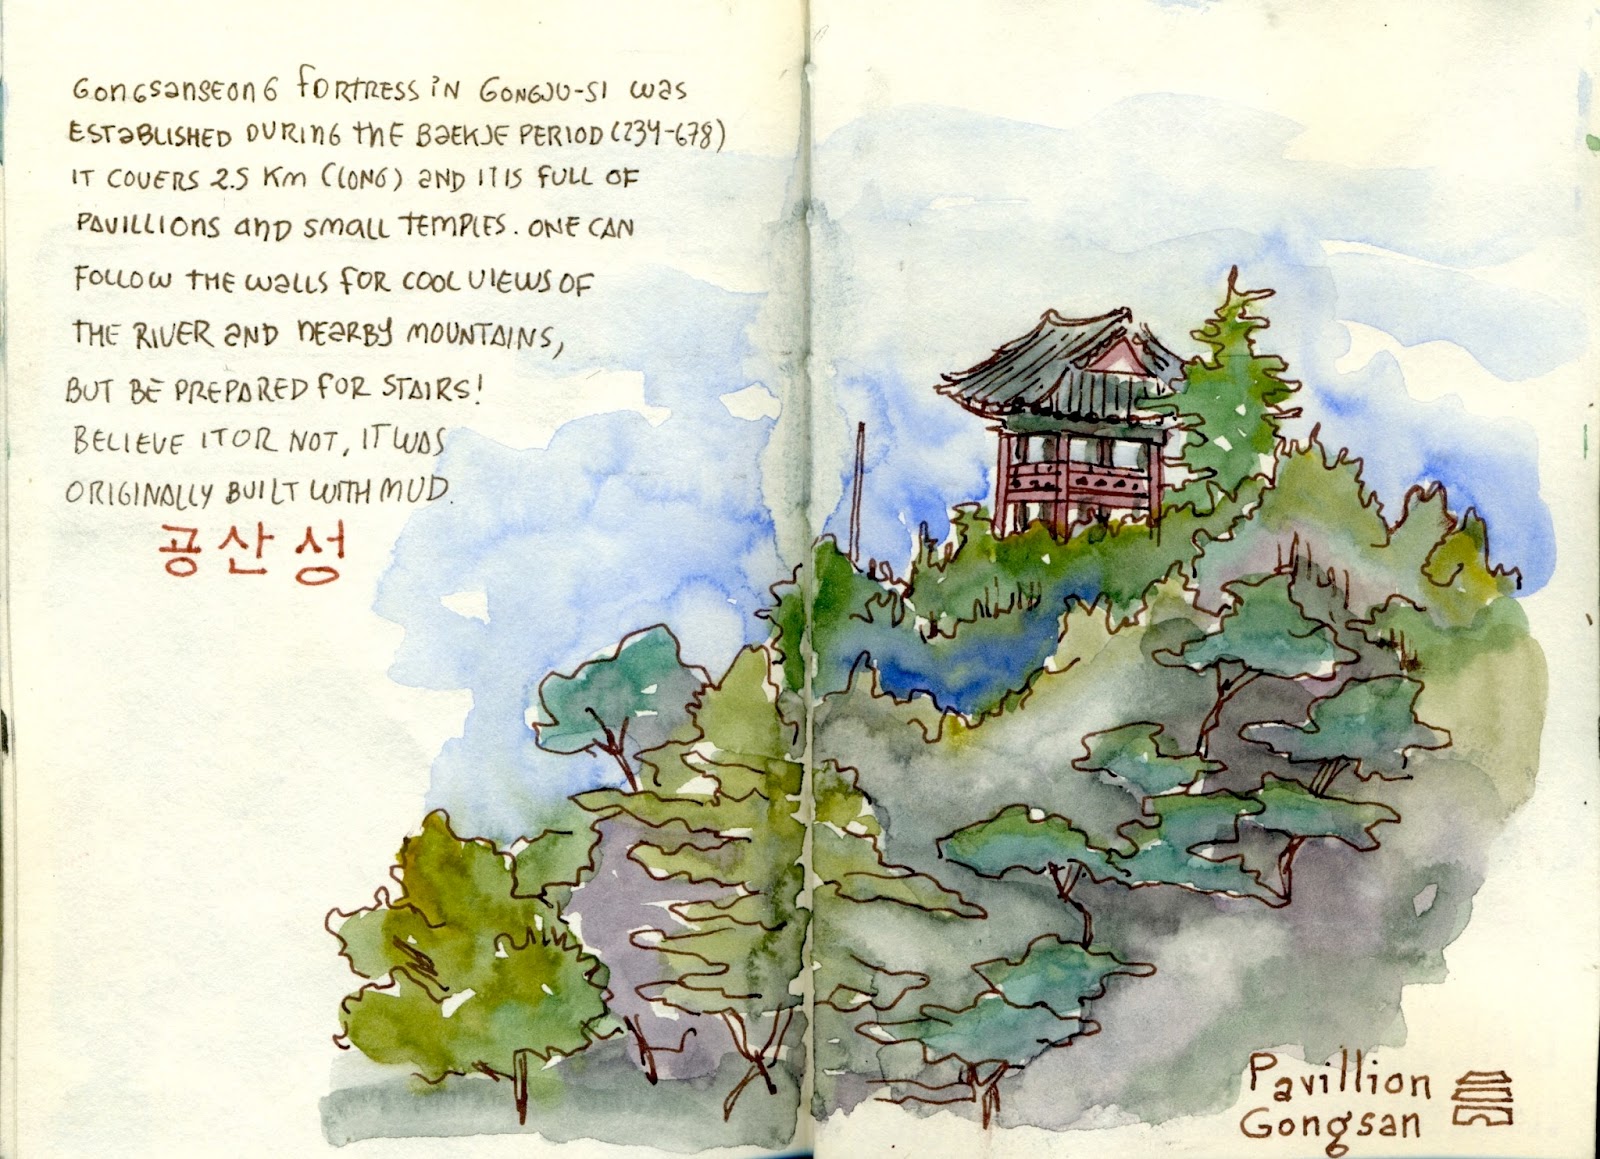 GONGSANSEONG FORTRESS IN GONGJU-SI WAS
ESTABLISHED DURING THE BAEKJE PERIOD (234-678)
IT COVERS 2.5 KM (LONG) AND IT IS FULL OF
PAVILLIONS AND SMALL TEMPLES. ONE CAN
FOLLOW THE WALLS FOR COOL VIEWS OF
THE RIVER AND NEARBY MOUNTAINS,
BUT BE PREPARED FOR STAIRS!
BELIEVE IT OR NOT, IT WAS
ORIGINALLY BUILT WITH MUD.
공산성
Pavillion
Gongsan